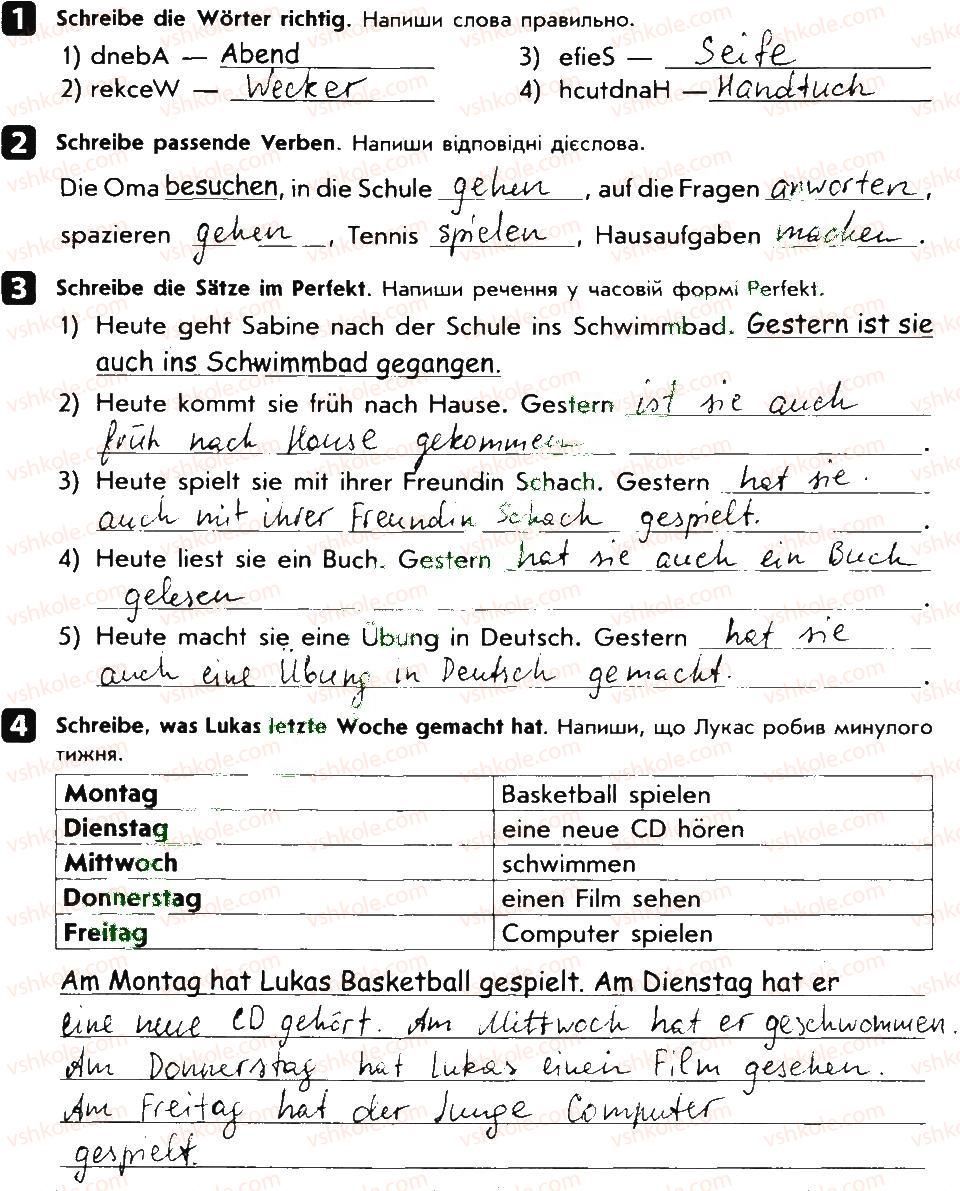 1 Schreibe die Wörter richtig. Напиши слова правильно.
1) dnebA — Abend 3) efieS — Seife
2) rekceW — Wecker 4) hcutdnaH — Handtuch
2 Schreibe passende Verben. Напиши відповідні дієслова.
Die Oma besuchen, in die Schule gehen, auf die Fragen anworten,
spazieren gehen, Tennis spielen, Hausaufgaben machen.
3 Schreibe die Sätze im Perfekt. Напиши речення у часовій формі Perfekt.
1) Heute geht Sabine nach der Schule ins Schwimmbad. Gestern ist sie
auch ins Schwimmbad gegangen.
2) Heute kommt sie früh nach Hause. Gestern ist sie auch
früh nach Hause gekommen.
3) Heute spielt sie mit ihrer Freundin Schach. Gestern hat sie
auch mit ihrer Freundin Schach gespielt.
4) Heute liest sie ein Buch. Gestern hat sie auch ein Buch
gelesen.
5) Heute macht sie eine Übung in Deutsch. Gestern hat sie
auch eine Übung in Deutsch gemacht.
4 Schreibe, was Lukas letzte Woche gemacht hat. Напиши, що Лукас робив минулого
тижня.
Montag Basketball spielen
Dienstag eine neue CD hören
Mittwoch schwimmen
Donnerstag einen Film sehen
Freitag Computer spielen
Am Montag hat Lukas Basketball gespielt. Am Dienstag hat er
eine neue CD gehört. Am Mittwoch hat er geschwommen.
Am Donnerstag hat Lukas einen Film gesehen.
Am Freitag hat der Junge Computer
gespielt.
vshkole.com